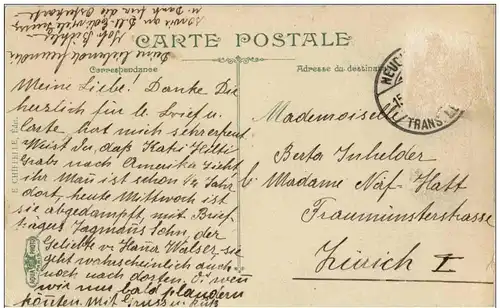 CARTE POSTALE
Correspondance
Adresse du destinataire
Meine Liebe. Danke Dir
herzlich für l. Brief u.
Karte hat mich sehr erfreut
Weist du, daß Kati
nach Amerika zieht
ihr Man ist schon ½ Jahr
dort, heute Mittwoch ist
sie abgedampft, mit Brief-
trägers Sohn, der
Geliebte v. Hana Walser, sie
geht wahrscheinlich auch
noch nach dorten. O, wen
wir nur bald plaudern
könnten. Mit Gruss u. Kuss
Deine liebende Freundin
Mademoiselle
Berta Inhelder
b/ Madame Näf-Hatt
Fraumünsterstrasse
Zürich I
NEUCH
TRANS